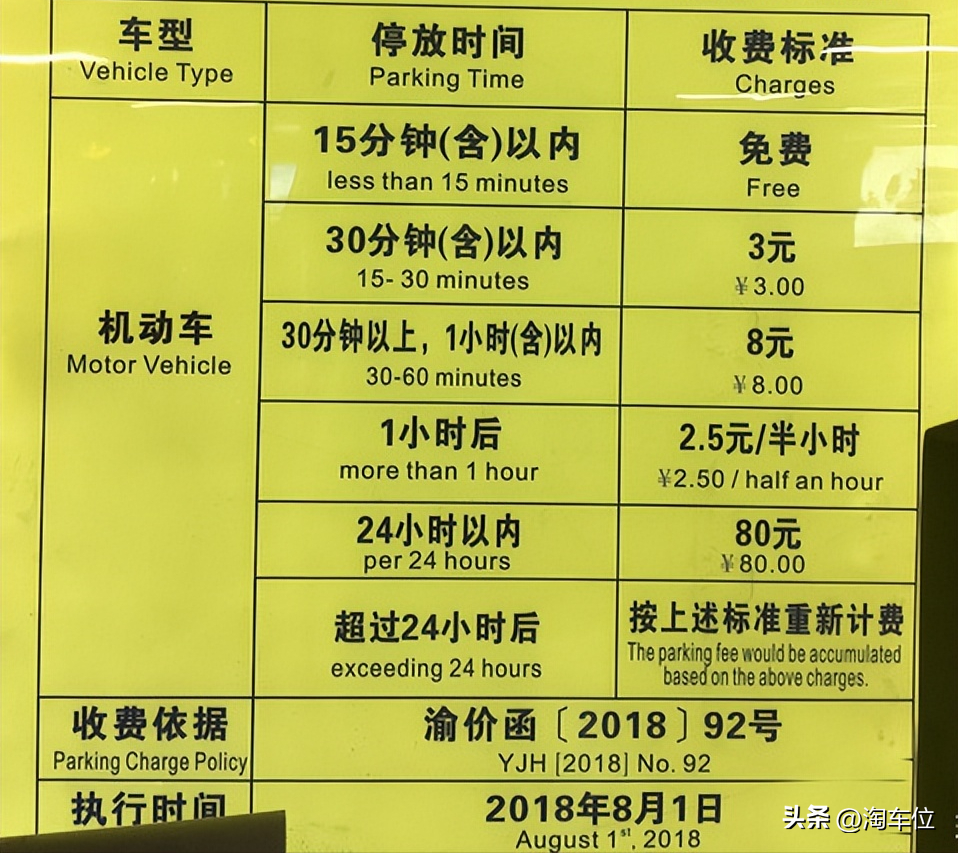 车型
Vehicle Type
停放时间
Parking Time
收费标准
Charges
机动车
Motor Vehicle
15分钟(含)以内
less than 15 minutes
免费
Free
30分钟(含)以内
15- 30 minutes
3元
¥3.00
30分钟以上，1小时(含)以内
30-60 minutes
8元
¥8.00
1小时后
more than 1 hour
2.5元/半小时
¥2.50 / half an hour
24小时以内
per 24 hours
80元
¥80.00
超过24小时后
exceeding 24 hours
按上述标准重新计费
The parking fee would be accumulated
based on the above charges.
收费依据
Parking Charge Policy
渝价函〔2018〕92号
YJH [2018] No. 92
执行时间
2018年8月1日
August 1st, 2018
头条 @淘车位